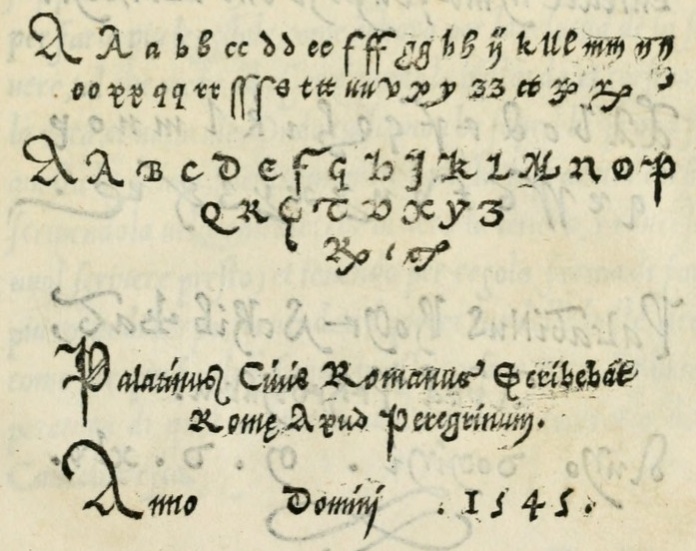 A A a b b cc dd ee ſ ff gg h h ij k ll l mm nn
oo pp qq rr ſſ ſ s ttt uu v x y zz ct
A A B C D E F G H I K L M N O P
Q R S T V X Y Z
Palatinus Ciuis Romanus Scribebat
Romę Apud Peregrinum.
Anno Domini . 1545.